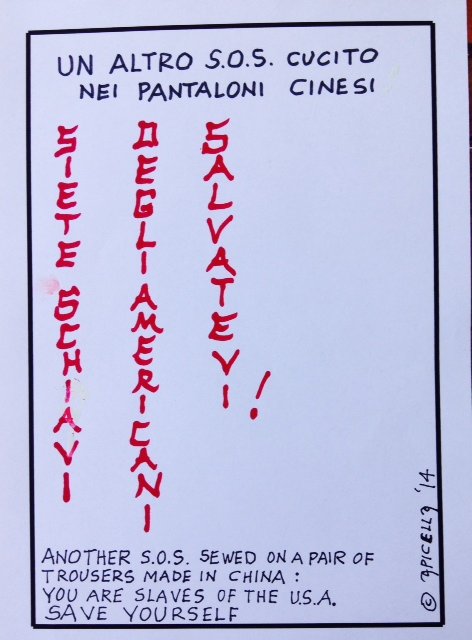 UN ALTRO S.O.S. CUCITO
NEI PANTALONI CINESI
SIETE SCHIAVI
DEGLI AMERICANI
SALVATEVI!
ANOTHER S.O.S. SEWED ON A PAIR OF
TROUSERS MADE IN CHINA:
YOU ARE SLAVES OF THE U.S.A.
SAVE YOURSELF
© APICELLA '14